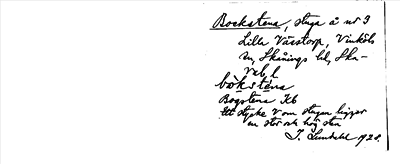 Bocksten​a, stuga å nr 3
Lilla Västorp, Vinköls
sn, Skånings hd, Ska-
rab. l
bòksténa
Bogstena Kb
Ett stycke V om stugan ligger
en stor och hög sten
J. Lundahl 1922.